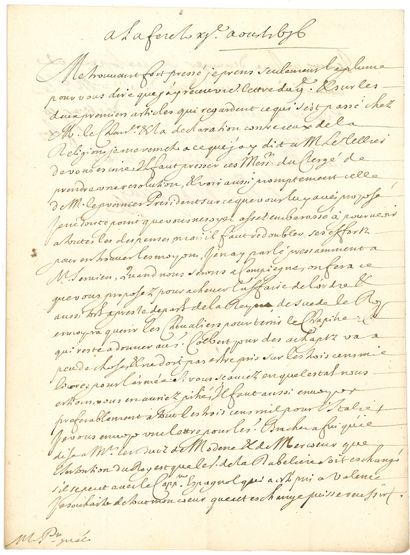 a La fere le xj.e aoust 1656
Me trouvant fort pressé je prens seulement la plume
pour vous dire que j'ay receu vre lettre du 9.e Et sur les
deux premiers articles qui regardent ce qui s'est passé chez
M. le Chan.er Et la declaration contre ceux de la
Religion, je me remets a ce que j'ay dit a M. le Tellier
de vous escrire. Il faut presser ces Mess.rs du Clergé de
prendre une resolution, Et voir aussi promptement celle
de M. le premier President sur ce que vous luy avez proposé
Je ne doute point que vous ne soyez assez embarassé a pourveoir
a toutes les despenses mais il faut redoubler ses efforts
pour en trouver les moyens. J'en ay parlé pressamment a
M. Servien, Quand nous serons a Compiegne, on fera ce
que vous proposez pour achever l'affaire de l'ordre Et
aussi tost apres le depart de la Reyne de Suede le Roy
envoyra querir les Chevaliers pour tenir le Chapitre
qui reste a donner
peu de chose Et ne doit pas estre pris sur les trois cens mil
livres pour l'armée Et vous sçavez en quel estat nous
en auriez pitié, Il faut aussi envoyer
preferablement a tout les trois cens mil pour l'Italie
Je vous envoye une lettre pour le
de Modene Et de Mercœur que
l'intention du Roy est que le s.r de la Rabeliere soit eschangé
s'il se peut avec le Cap.ne Espagnol qui a esté pris a Valence
Je souhaite de tout mon cœur que cet eschange puisse reussir